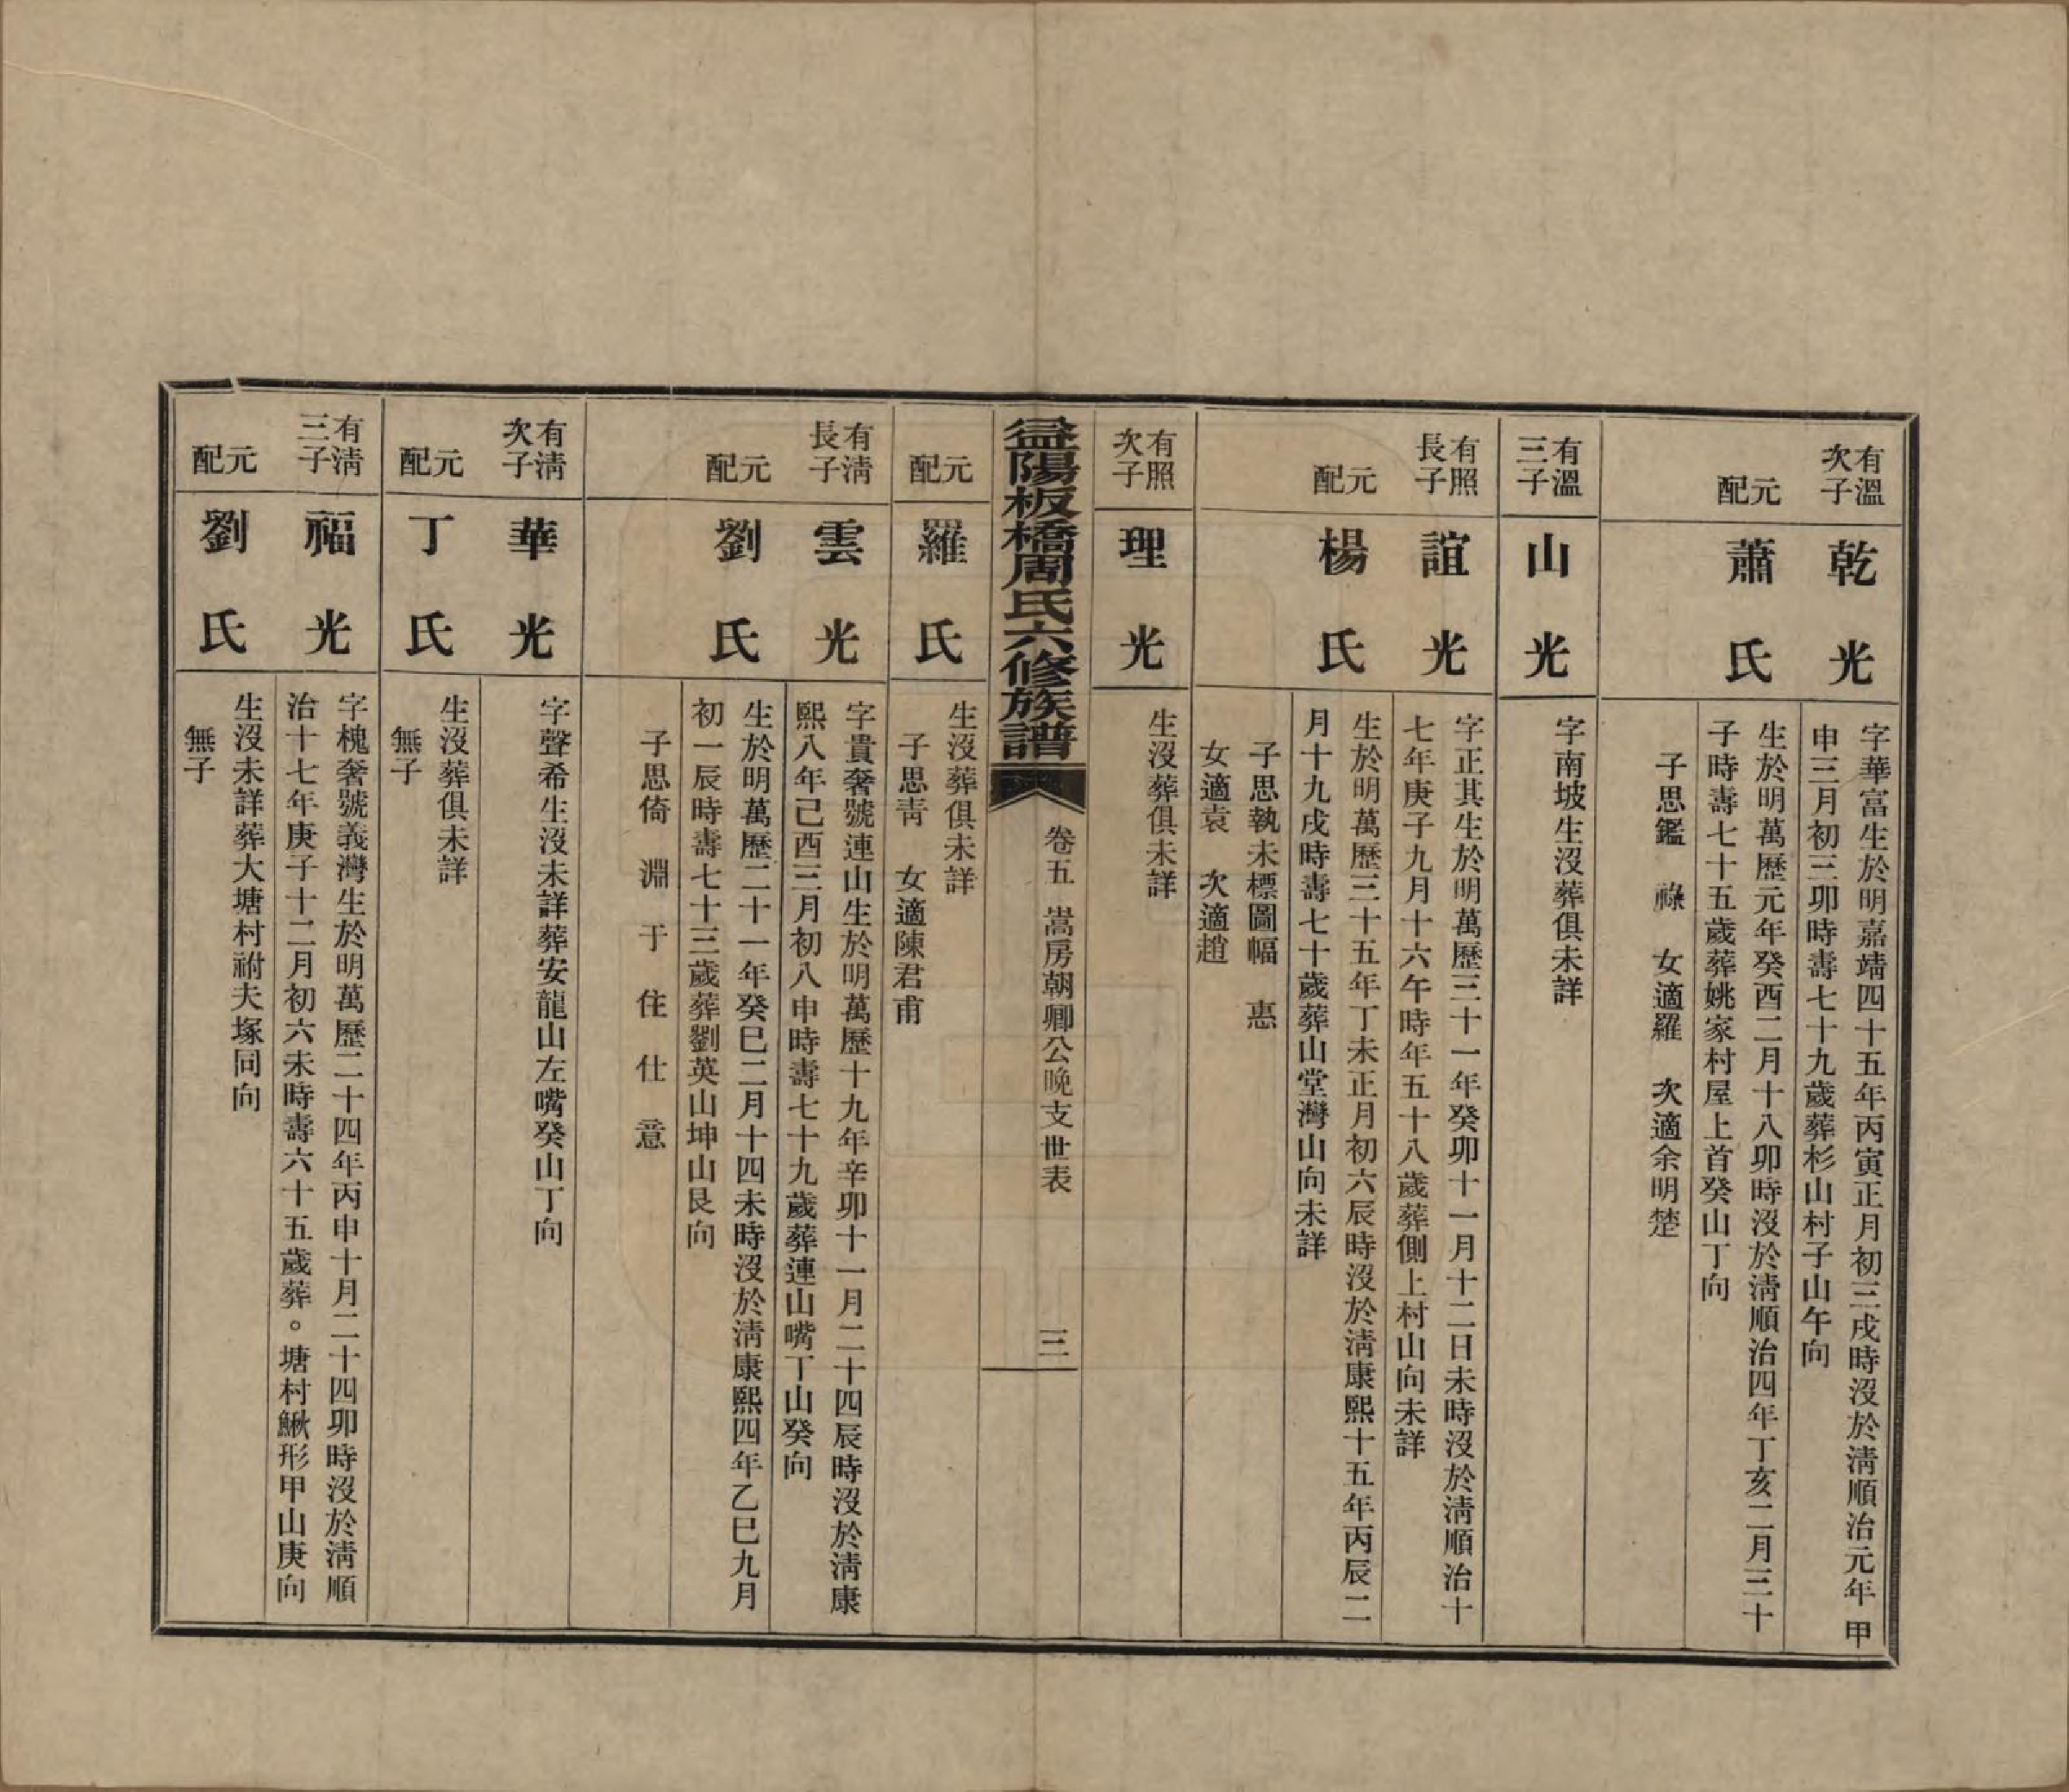 有溫次子
乾光
字華富生於明嘉靖四十五年丙寅正月初三戌時沒於淸順治元年甲
申三月初三卯時壽七十九歲葬杉山村子山午向
元配
蕭氏
生於明萬歷元年癸酉二月十八卯時沒於淸順治四年丁亥二月三十
子時壽七十五歲葬姚家村屋上首癸山丁向
子思鑑 祿 女適羅 次適余明楚
有溫三子
山光
字南坡生沒葬俱未詳
有照長子
誼光
字正其生於明萬歷三十一年癸卯十一月十二日未時沒於淸順治十
七年庚子九月十六午時年五十八歲葬側上村山向未詳
元配
楊氏
生於明萬歷三十五年丁未正月初六辰時沒於淸康熙十五年丙辰二
月十九戌時壽七十歲葬山堂灣山向未詳
子思執未標圖幅 惪
女適袁 次適趙
有照次子
理光
生沒葬俱未詳
益陽板橋周氏六修族譜
卷五 嵩房朝卿公晚支世表
三
元配
羅氏
生沒葬俱未詳
子思靑 女適陳君甫
有淸長子
雲光
字貴奢號連山生於明萬歷十九年辛卯十一月二十四辰時沒於淸康
熙八年己酉三月初八申時壽七十九歲葬連山嘴丁山癸向
元配
劉氏
生於明萬歷二十一年癸巳二月十四未時沒於淸康熙四年乙巳九月
初一辰時壽七十三歲葬劉英山坤山艮向
子思倚 淵 于 住 仕 意
有淸次子
華光
字聲希生沒未詳葬安龍山左嘴癸山丁向
元配
丁氏
生沒葬俱未詳
無子
有淸三子
福光
字槐奢號義灣生於明萬歷二十四年丙申十月二十四卯時沒於淸順
治十七年庚子十二月初六未時壽六十五歲葬。塘村鰍形甲山庚向
元配
劉氏
生沒未詳葬大塘村祔夫塚同向
無子